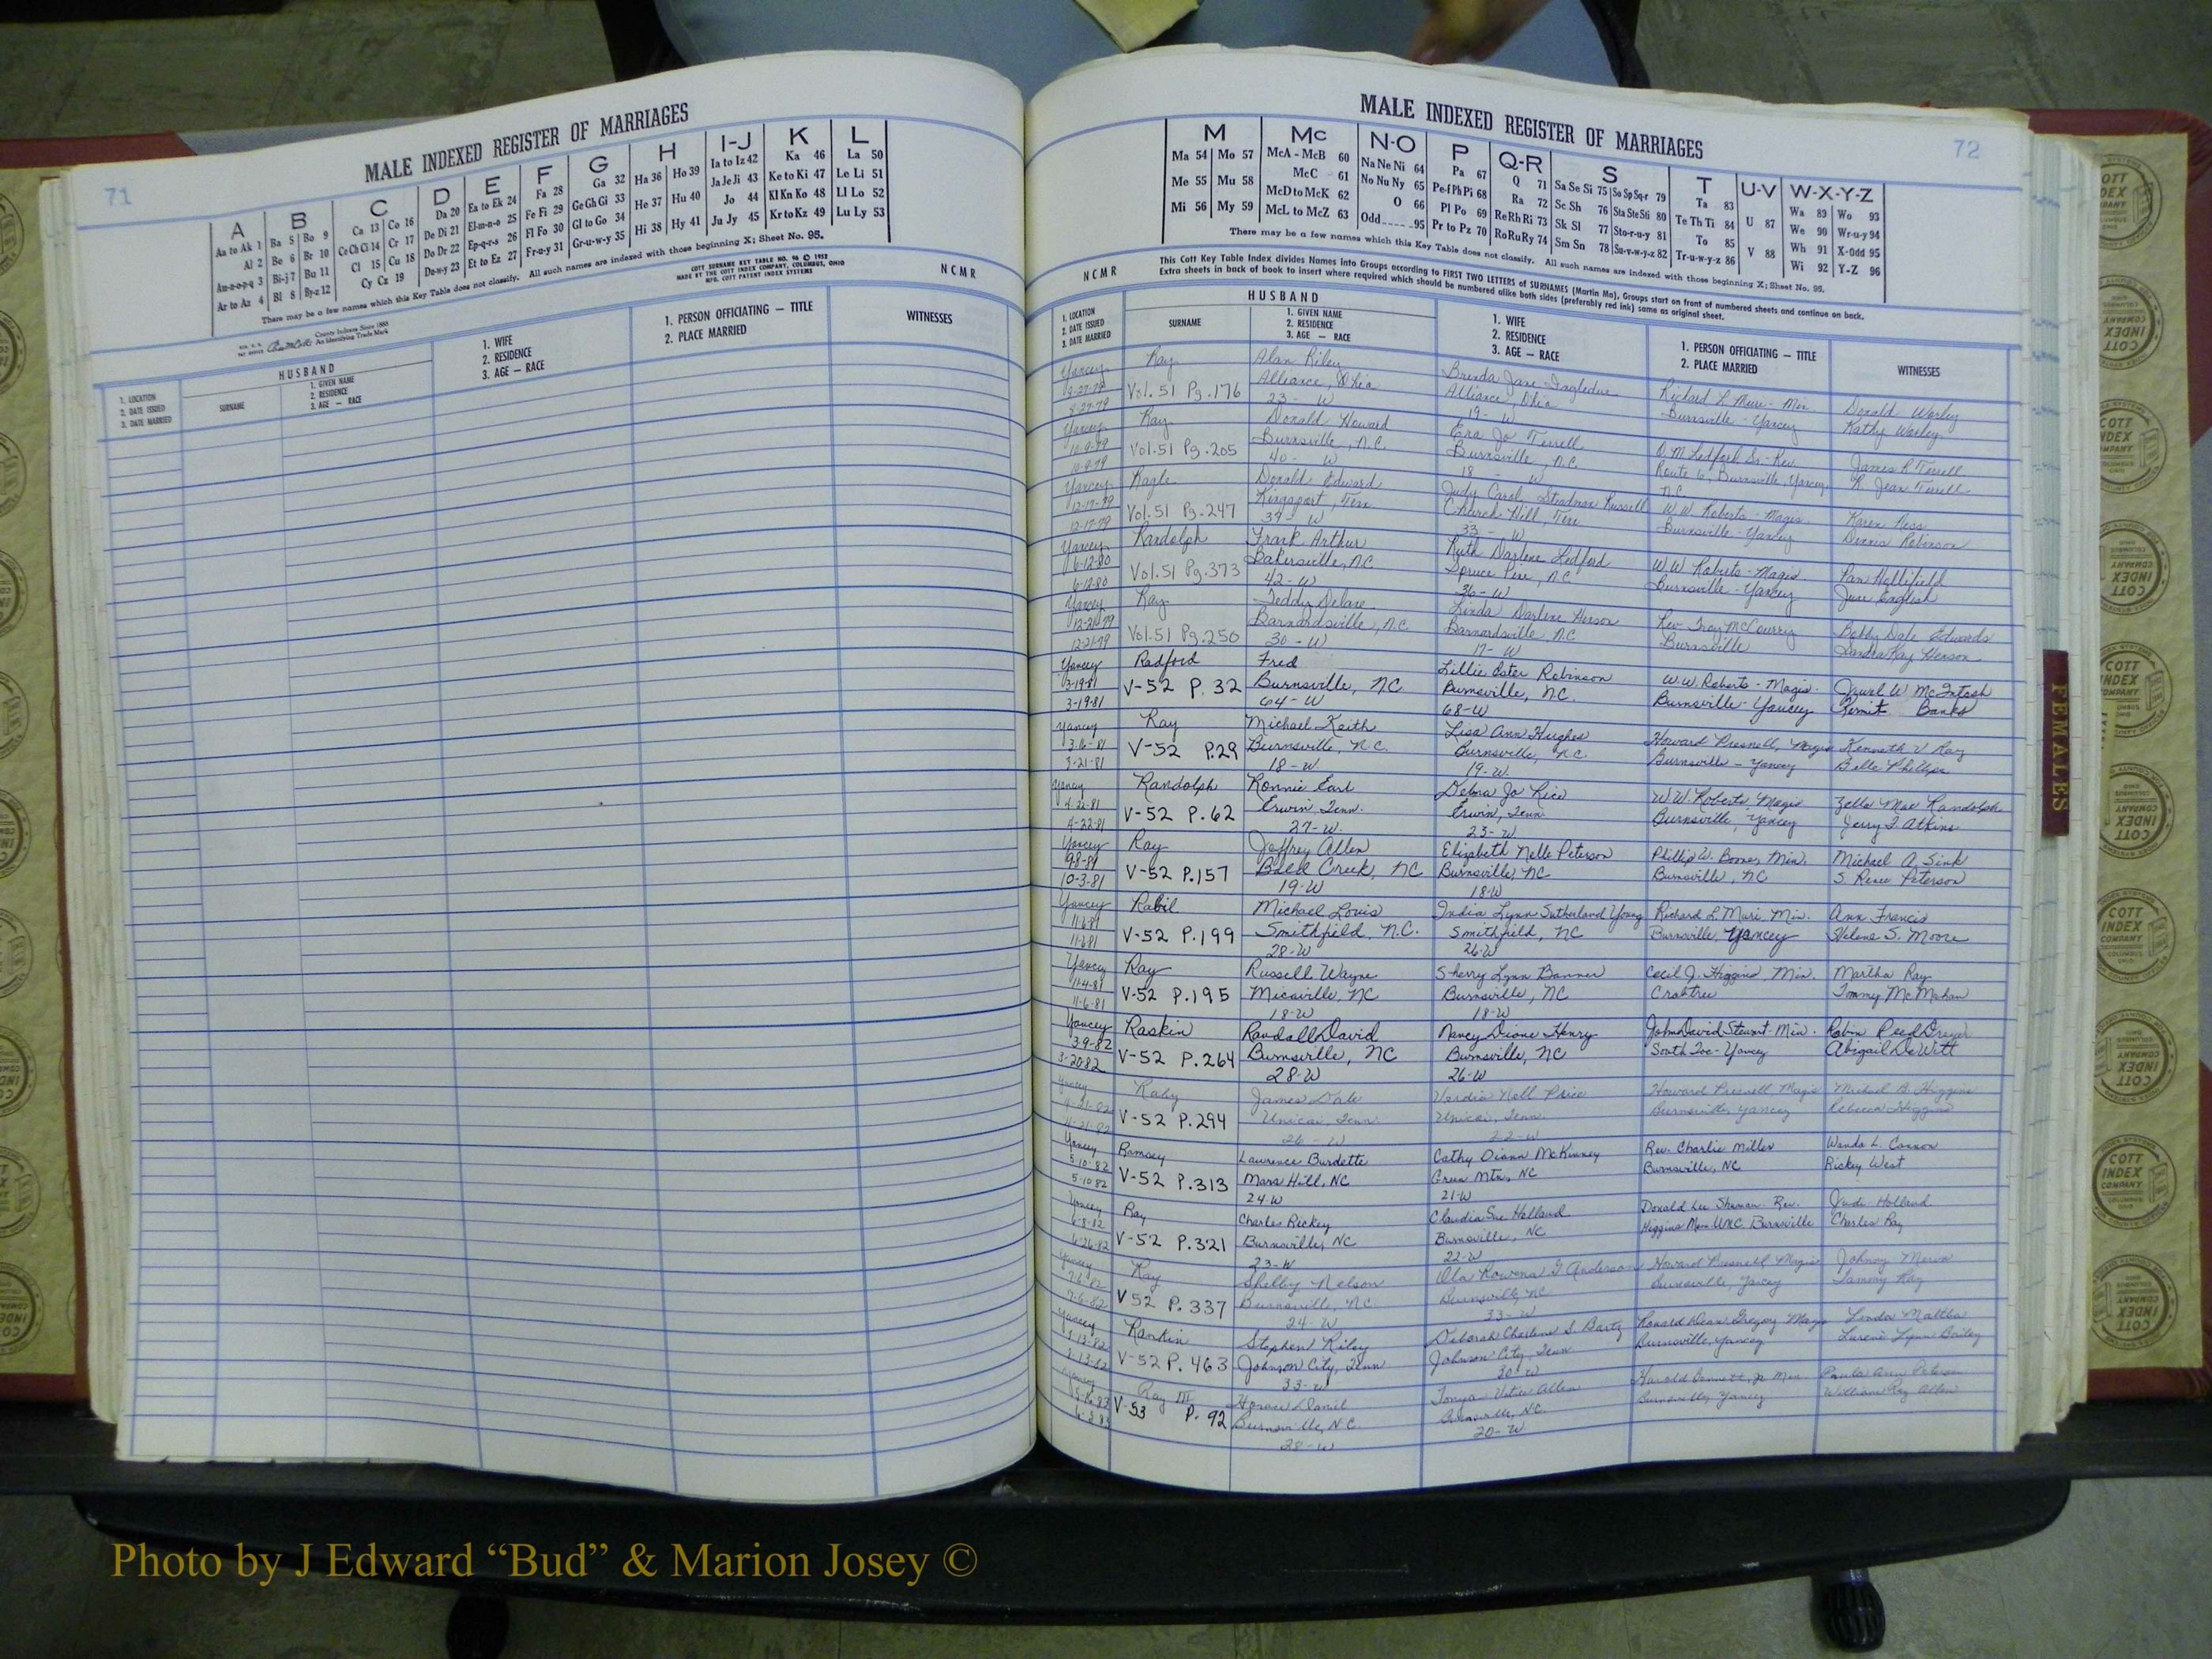 71
MALE INDEXED REGISTER OF MARRIAGES
A B C D E F G H I-J K L
Aa to Ak 1 Ba 5 Bo 9 Ca 13 Co 16 Da 20 Ea to Ek 24 Fa 28 Ga 32 Ha 36 Ho 39 Ia to Iz 42 Ka 46 La 50
Al 2 Be 6 Br 10 Ce Ch Ci 14 Cr 17 De Di 21 El-m-n-o 25 Fe Fi 29 Ge Gh Gi 33 He 37 Hu 40 Ja Je Ji 43 Ke to Ki 47 Le Li 51
Am-n-o-p-q 3 Bi-j 7 Bu 11 Cl 15 Cu 18 Do Dr 22 Ep-q-r-s 26 Fl Fo 30 Gl to Go 34 Hi 38 Hy 41 Jo 44 Kl Kn Ko 48 Ll Lo 52
Ar to Az 4 Bl 8 By-z 12 Cy Cz 19 De-w-y 23 Et to Ez 27 Fr-u-y 31 Gr-u-w-y 35 Ju Jy 45 Kr to Kz 49 Lu Ly 53
There may be a few names which this Key Table does not classify. All such names are indexed with those beginning X; Sheet No. 95.
County Indexes Since 1888
An Identifying Trade Mark
COTT SURNAME KEY TABLE NO. 96 © 1952
MADE BY THE COTT INDEX COMPANY, COLUMBUS, OHIO
MFG. COTT PATENT INDEX SYSTEMS
NCMR
1. LOCATION
2. DATE ISSUED
3. DATE MARRIED
HUSBAND
SURNAME
1. GIVEN NAME
2. RESIDENCE
3. AGE — RACE
1. WIFE
2. RESIDENCE
3. AGE — RACE
1. PERSON OFFICIATING — TITLE
2. PLACE MARRIED
WITNESSES
MALE INDEXED REGISTER OF MARRIAGES
72
M Mc N-O P Q-R S T U-V W-X-Y-Z
Ma 54 Mo 57 McA - McB 60 Na Ne Ni 64 Pa 67 Q 71 Sa Se Si 75 So Sp Sq-r 79 Ta 83 U 87 Wa 89 Wo 93
Me 55 Mu 58 McC 61 No Nu Ny 65 Pe-f Ph Pi 68 Ra 72 Sc Sh 76 Sta Ste Sti 80 Te Th Ti 84 We 90 Wr-u-y 94
Mi 56 My 59 McD to McK 62 O 66 Pl Po 69 Re Rh Ri 73 Sk Sl 77 Sto-r-u-y 81 To 85 V 88 Wh 91 X-Odd 95
McL to McZ 63 Odd 95 Pr to Pz 70 Ro Ru Ry 74 Sm Sn 78 Su-v-w-y-z 82 Tr-u-w-y-z 86 Wi 92 Y-Z 96
There may be a few names which this Key Table does not classify. All such names are indexed with those beginning X; Sheet No. 95.
NCMR
This Cott Key Table Index divides Names into Groups according to FIRST TWO LETTERS of SURNAMES (Martin Ma), Groups start on front of numbered sheets and continue on back.
Extra sheets in back of book to insert where required which should be numbered alike both sides (preferably red ink) same as original sheet.
1. LOCATION
2. DATE ISSUED
3. DATE MARRIED
HUSBAND
SURNAME
1. GIVEN NAME
2. RESIDENCE
3. AGE — RACE
1. WIFE
2. RESIDENCE
3. AGE — RACE
1. PERSON OFFICIATING — TITLE
2. PLACE MARRIED
WITNESSES
Yancey Ray Alan Riley Brenda Jane Ingledue Richard L. Muri - Min. Donald Worley
8-27-79 Vol. 51 Pg. 176 Alliance, Ohio Alliance, Ohio Burnsville - Yancey Kathy Worley
8-27-79 23 - W 19 - W
Yancey Ray Donald Howard Eva Jo Terrell O. M. Ledford Sr. - Rev. James R. Terrell
10-9-79 Vol. 51 Pg. 205 Burnsville, N.C. Burnsville, N.C. Route 6, Burnsville, Yancey R. Jean Terrell
10-9-79 40 - W 18 W NC
Yancey Ragle Donald Edward Judy Carol Steadman Russell W. W. Roberts - Magis. Karen Hess
12-17-79 Vol. 51 Pg. 247 Kingsport, Tenn Church Hill, Tenn Burnsville - Yancey Dennis Robinson
12-17-79 39 - W 33 - W
Yancey Randolph Frank Arthur Ruth Darlene Ledford W.W. Roberts - Magis. Pam Hollifield
6-12-80 Vol. 51 Pg. 373 Bakersville, NC Spruce Pine, N.C. Burnsville - Yancey June English
6-12-80 42 - W 36 - W
Yancey Ray Teddy Delane Linda Darlene Henson Rev Troy McCourry Bobby Dale Edwards
12-21-79 Vol. 51 Pg. 250 Barnardsville, N.C. Barnardsville NC Burnsville Sandra Kay Henson
12-21-79 30 - W 17 - W
Yancey Radford Fred Lillie Ester Robinson W.W. Roberts - Magis. Jewel W McIntosh
3-19-81 V-52 P. 32 Burnsville, NC Burnsville, NC. Burnsville - Yancey Kermit Banks
3-19-81 64 - W 68 - W
Yancey Ray Michael Keith Lisa Ann Hughes Howard Presnell, Magis Kenneth V Ray
3-16-81 V-52 P.29 Burnsville, N.C. Burnsville, N.C. Burnsville - Yancey Belle Phillips
3-21-81 18 - W. 19 - W.
Yancey Randolph Ronnie Earl Debra Jo Rice W.W. Roberts, Magis Zella Mae Randolph
4-22-81 V-52 P.62 Erwin Tenn. Erwin, Tenn Burnsville, Yancey Jerry F. Atkins
4-22-81 27 - W. 23 - W
Yancey Ray Jeffrey Allen Elizabeth Nelle Peterson Phillip W. Boone, Min. Michael A. Sink
9-8-81 V-52 P.157 Bald Creek, NC Burnsville, NC Burnsville, NC S. Renee Peterson
10-3-81 19-W 18-W
Yancey Rabil Michael Louis India Lynn Sutherland Young Richard L. Muri, Min. Ann Francis
11-6-81 V-52 P.199 Smithfield, N.C. Smithfield, NC Burnsville, Yancey Helene S. Moore
11-6-81 28-W 26-W
Yancey Ray Russell Wayne Sherry Lynn Banner Cecil J. Higgins, Min. Martha Ray
11-4-81 V-52 P.195 Micaville, NC Burnsville, NC Crabtree Tommy McMahan
11-6-81 18-W 18-W
Yancey Raskin Randall David Nancy Diane Henry John David Stewart - Min. Robin Reed
3-9-82 V-52 P.264 Burnsville, NC Burnsville, NC South Toe - Yancey Abigail DeWitt
3-20-82 28-W 26-W
Yancey Raby James Dale Verdia Nell Price Howard Presnell Magis Michael B. Higgins
4-21-82 V-52 P.294 Unicoi, Tenn Unicoi, Tenn. Burnsville, Yancey Rebecca Higgins
4-21-82 26 - W 22-W
Yancey Ramsey Lawrence Burdette Cathy Diann McKinney Rev. Charlie Miller Wanda L. Cannon
5-10-82 V-52 P.313 Mars Hill, NC Green Mtn, NC Burnsville, NC Rickey West
5-10-82 24 W 21 W
Yancey Ray Charles Rickey Claudia Sue Holland Donald Lee Shuman - Rev. Judi Holland
6-8-82 V-52 P.321 Burnsville, NC Burnsville, NC Higgins Mem. UMC. Burnsville Charles Ray
6-26-82 23-W 22-W
Yancey Ray Shelby Nelson Ola Rowena G Anderson Howard Presnell Magis
7-6-82 V 52 P. 337 Burnsville, NC Burnsville, NC Burnsville, Yancey Tammy Ray
7-6-82 24 - W 33 - W
Yancey Rankin Stephen Riley Deborah Charlene S. Bartz Ronard Dean Gregory Magis Linda Maltba
V-52 P. 463 Johnson City, Tenn Johnson City, Tenn Burnsville, Yancey Lynn Bailey
33 - W 30 - W
Yancey Ray III Horace Daniel Tonya Allen Harold Bennett, Jr Min. Paula Ann Peterson
V-53 P. 92 Burnsville, N.C. Burnsville, NC. Burnsville, Yancey William Ray Allen
28 - W 20 - W
FEMALES
COTT
INDEX
COMPANY
OHIO
Photo by J Edward “Bud” & Marion Josey ©